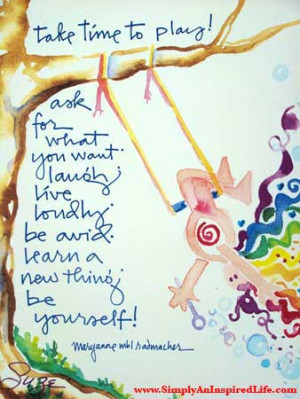 take time to play!
ask
for
what
you want.
laugh;
live
loudly.
be avid.
learn a
new thing;
be
yourself!
maryanne
www.SimplyAnInspiredLife.com